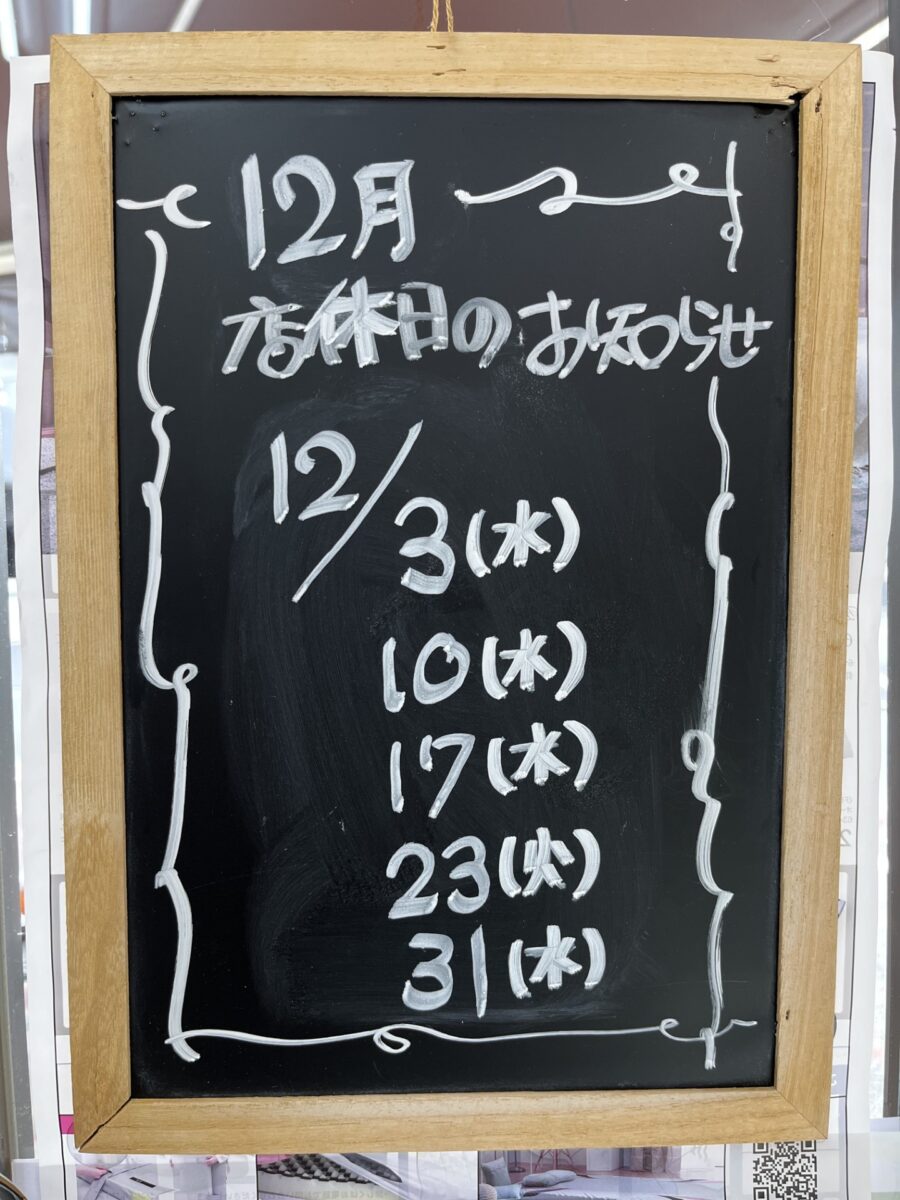 12月
店休日のお知らせ
12/3(水)
10(水)
17(水)
23(火)
31(水)